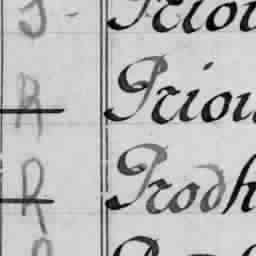 J - Priou
R Priou
R Prodh